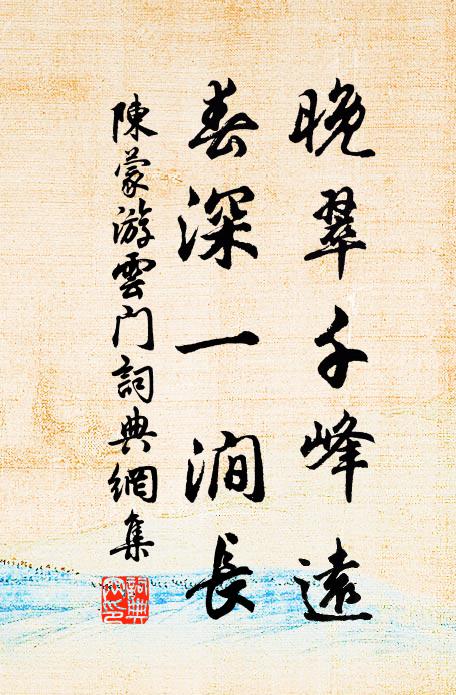 晚翠千峰遠
春深一澗長
陳蒙游雲门詞典網集